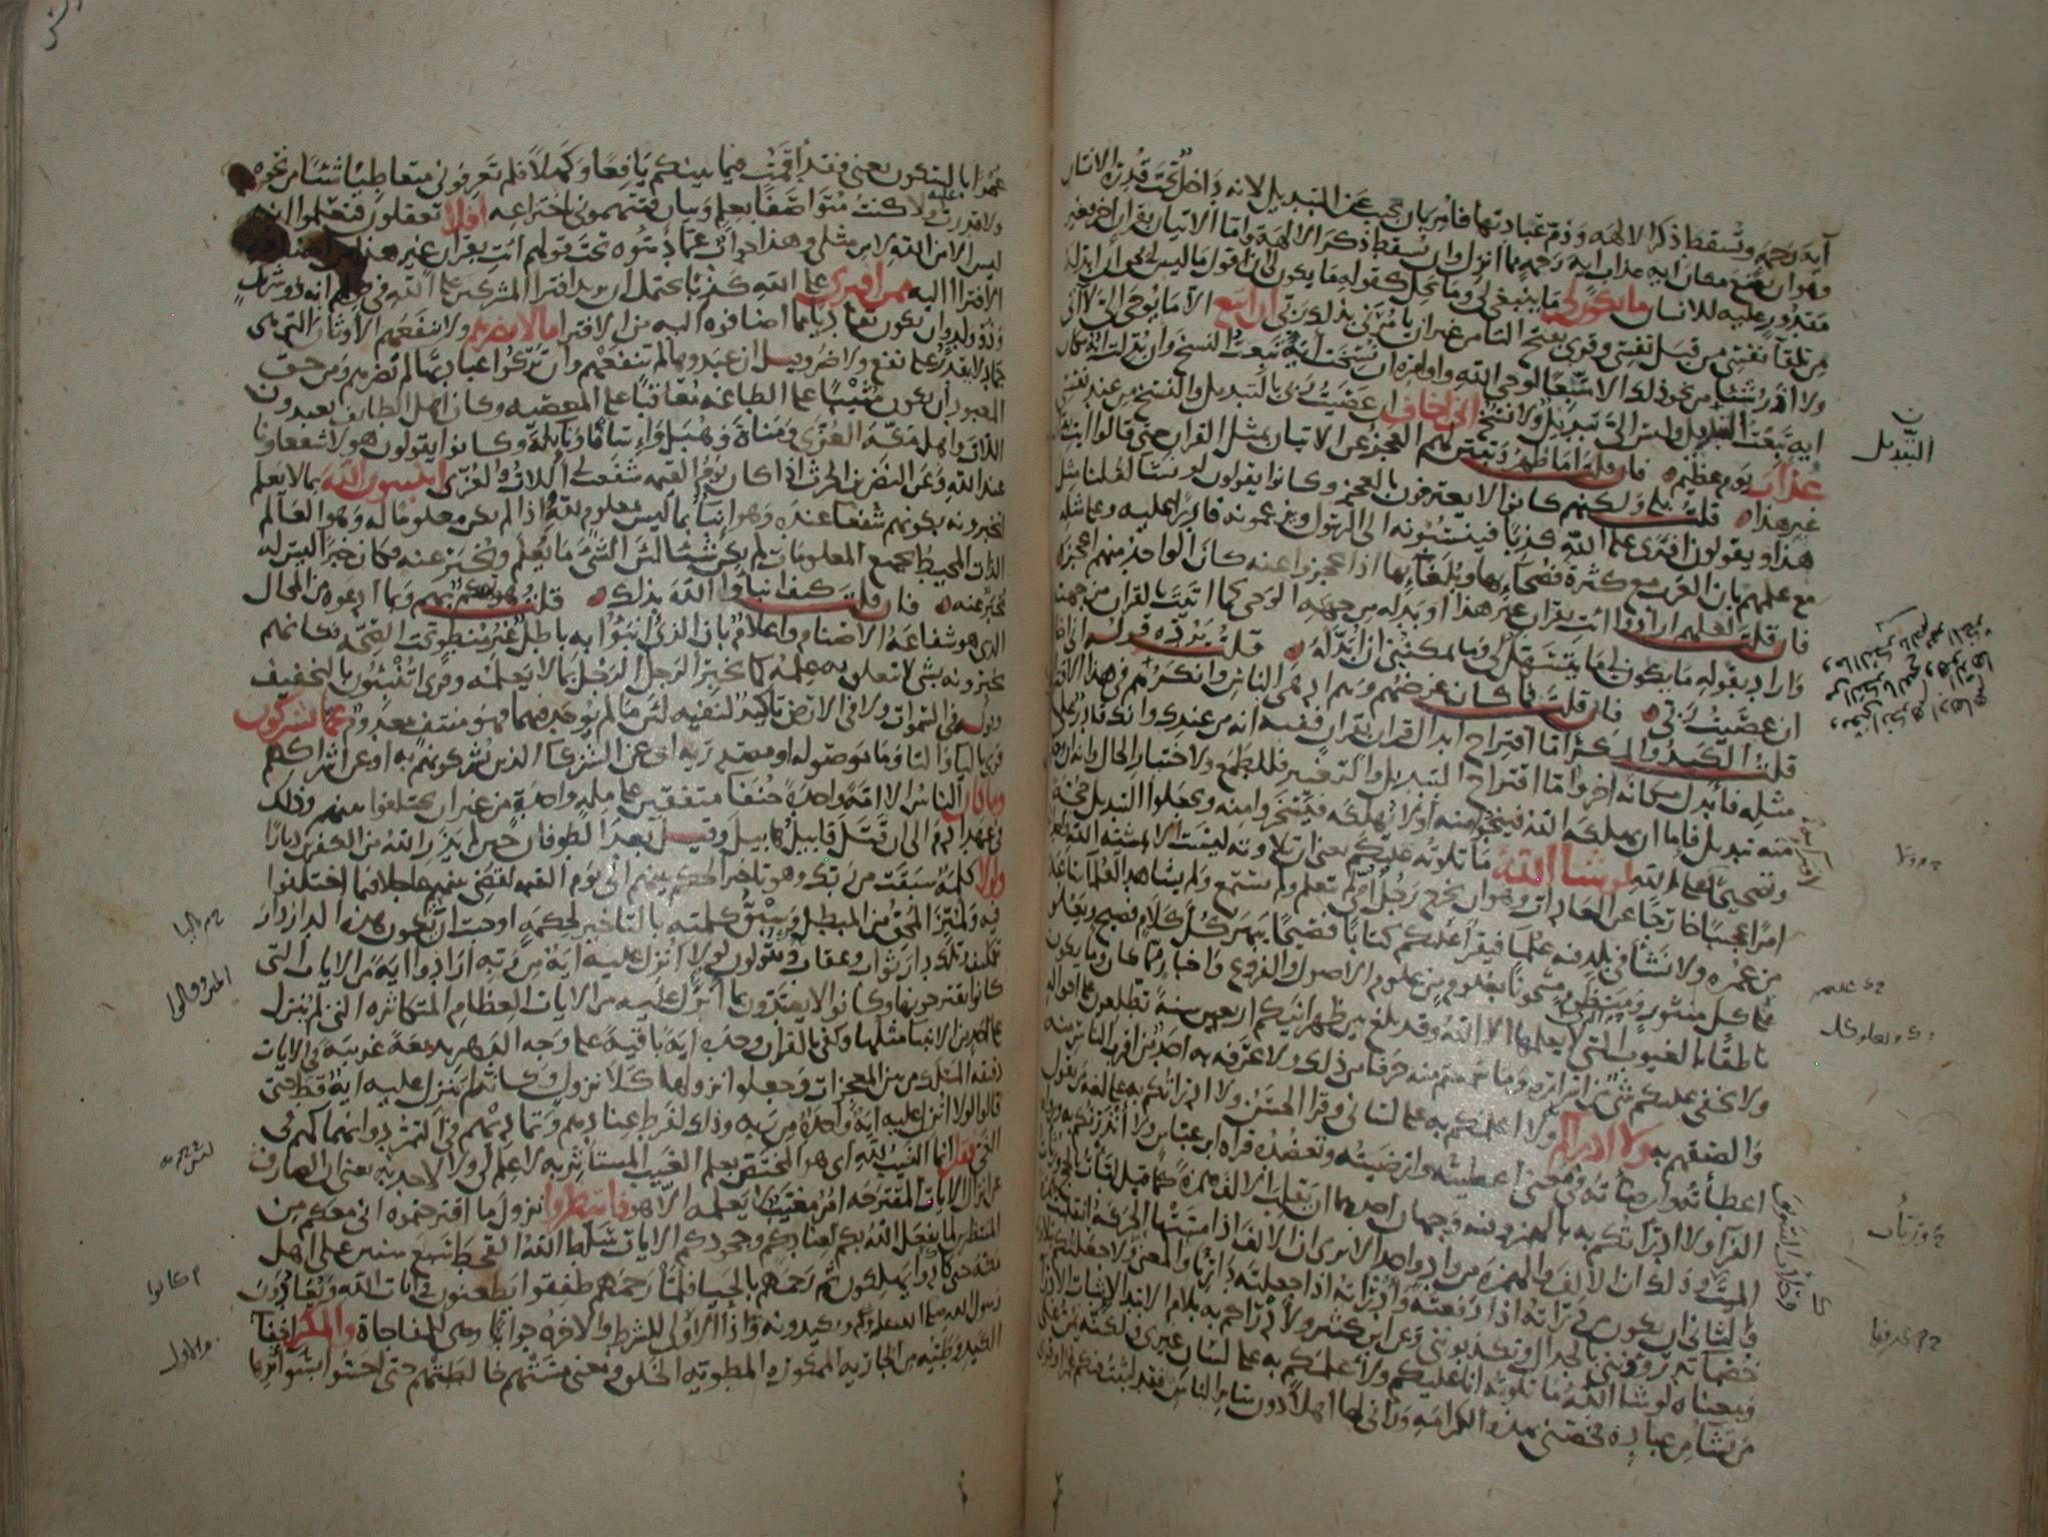 آية رحمة وتسقط ذكر الالهة وذم عبادتها فأمر بان يجيب عن التبديل لانه داخل تحت قدرة الانسان
وهو ان يضع مكان اية عذاب اية رحمة مما انزل وان يسقط ذكر الالهة واما الاتيان بقران اخر فغير
مقدور عليه للانسان ما يكون لي ما ينبغي لي وما يحل كقوله ما يكون لي ان اقول ما ليس لي بحق ان ابدله
من تلقآ نفسي من قبل نفسي وقرى بفتح التا من غير ان يامرني بذلك ربي ان اتبع الا ما يوحى الي لا اتي
ولا اذر شيئا من نحو ذلك الا متبعا لوحي الله واوامره ان نسخت اية تبعت النسخ وان بدلت اية مكان
اية تبعت التبديل وليس الي تبديل ولا نسخ اني اخاف ان عصيت ربي بالتبديل والنسخ من عند نفسي
عذاب يوم عظيم فان قلت اما ظهر وتبين لهم العجز عن الاتيان بمثل القران حتى قالوا ائت
غير هذا قلت بلى ولكنهم كانوا لا يعترفون بالعجز وكانوا يقولون لو نشا لقلنا مثل
هذا ويقولون افترى على الله كذبا فينسبونه الى الرسول ويزعمونه قادرا عليه وعلى مثله
مع علمهم بان العرب مع كثرة فصحآئها وبلغآئها اذا عجزوا عنه كان الواحد منهم اعجز
فان قلت لعلهم ارادوا ائت بقران غير هذا او بدله من جهة الوحي كما اتيت بالقران من جهته
واراد بقوله ما يكون لي ما يتسهل لي وما يمكنني ان ابدله قلت يرده قوله اني اخاف
ان عصيت ربي فان قلت فما كان غرضهم وهم ادهى الناس وانكرهم في هذا الاقتراح
قلت الكيد والمكر اما اقتراح ابدال قران بقران ففيه انه من عندك وانك قادر على
مثله فابدل مكانه اخر واما اقتراح التبديل والتغيير فللطمع ولاختبار الحال وانه ان وجد
منه تبديل فاما ان يهلكه الله فينجوا منه او لا يهلكه فيسخروا منه ويجعلوا التبديل حجة
وتصحيحا لـ على الله لو شا الله ما تلوته عليكم يعني ان تلاوته ليست الا بمشيئة الله
امرا عجيبا خارجا عن العادات وهو ان يخرج رجل امي لم يتعلم ولم يستمع ولم يشاهد العلما ساعة
من عمره ولا نشأ في بلد فيه علما فيقرا عليكم كتابا فصيحا يبهر كل كلام فصيح ويعلو
على كل منثور ومنظوم مشحونا بعلوم من علوم الاصول والفروع واخبار مما كان وما يكون
ناطقا بالغيوب التي لا يعلمها الا الله وقد بلغ بين ظهرانيكم اربعين سنة تطلعون على احواله
ولا يخفى عليكم شي من اسراره وما سمعتم منه حرفا من ذلك ولا عرفه به احد من اقرب الناس منه
والصقهم به ولا ادراكم ولا اعلمكم به على لساني وقرا الحسن ولا ادراتكم به على لغة من يقول
اعطأته وارضأته في معنى اعطيته وارضيته وتعضده قراة ابن عباس ولا انذرتكم به ورواه
الفرا ولا ادرأتكم به بالهمز وفيه وجهان احدهما ان تقلب الالف همزة كما قيل لبأت بالحج ورثأت
الميت وذلك ان الالف والهمزة من واد واحد الا ترى ان الالف اذا مستها الحركة انقلبت همزة
والثاني ان يكون من درأته اذا دفعته وادرأته اذا جعلته داريا والمعنى ولا جعلتكم بتلاوته
خصما تدرؤونني بالجدال وتكذبونني وعن ابن كثير ولأدراكم به بلام الابتدا لاثبات الادرا
ومعناه لو شا الله ما تلوته انا عليكم ولأعلمكم به على لسان غيري ولكنه يمن على
من يشا من عباده فخصني بهذه الكرامة ورآني لها اهلا دون ساير الناس فقد لبثت فيكم عمرا وقرى
التبديل
عمرا بالسكون يعني فقد اقمت فيما بينكم يافعا وكهلا فلم تعرفوني متعاطيا شيئا من نحوه
ولا قدرت عليه ولا كنت متواصفا بعلم وبيان فتتهموني باختراعه افلا تعقلون فتعلموا انه
ليس الا من الله لا من مثلي وهذا جواب عما دسوه تحت قولهم ائت بقران غير هذا من اضافة
الافترا اليه فمن اظلم ممن افترى على الله كذبا يحتمل ان يريد افترا المشركين على الله في قولهم انه ذو شريك
وذو ولد وان يكون تفاديا مما اضافوه اليه من الافترا ما لا يضرهم ولا ينفعهم الاوثان التي هي
جماد لا يقدر على نفع ولا ضر وقيل ان عبدوها لم تنفعهم وان تركوا عبادتها لم تضرهم ومن حق
المعبود أن يكون مثيبا على الطاعة معاقبا على المعصية وكان اهل الطايف يعبدون
اللات واهل مكة العزى ومناة وهبل وإسافا ونايلة وكانوا يقولون هولا شفعاونا
عند الله وعن النضر بن الحرث اذا كان يوم القيمة شفعت لي اللات والعزى اتنبيون الله بما لا يعلم
اتخبرونه بكونهم شفعا عنده وهو انبآ بما ليس بمعلوم لله واذا لم يكن معلوما له وهو العالم
الذات المحيط بجميع المعلومات لم يكن شيئا لان الشي ما يعلم ويخبر عنه فكان خبرا ليس له
مخبر عنه فان قلت كيف انبأوا الله بذلك قلت هو تهكم بهم وبما ادعوه من المحال
الذي هو شفاعة الاصنام واعلام بان الذي انبؤا به باطل غير منطو تحت الصحة فكانهم
يخبرونه بشي لا يتعلق به علمه كما يخبر الرجل الرجل بما لا يعلمه وقرى اتنبئون بالتخفيف
وقوله في السموات ولا في الارض تاكيد لنفيه لان ما لم يوجد فيهما فهو منتف معدوم عما تشركون
قرى باليا والتا وما موصولة او مصدرية اي عن الشركآ الذين تشركونهم به او عن اشراككم
وما كان الناس الا امة واحدة حنفا متفقين على ملة واحدة من غير ان يختلفوا بينهم وذلك
في عهد ادم الى ان قتل قابيل هابيل وقيل بعد الطوفان حين لم يذر الله من الكفرين ديارا
ولولا كلمة سبقت من ربك وهو تاخير الحكم بينهم الى يوم القيمة لقضي بينهم عاجلا فيما اختلفوا
فيه ولميز المحق من المبطل وسبق كلمته بالتاخير لحكمة اوجبت ان تكون هذه الدار دار
تكليف وتلك دار ثواب وعقاب ويقولون لولا انزل عليه اية من ربه ارادوا اية من الايات التي
كانوا يقترحونها وكانوا لا يعتدون بما انزل عليه من الايات العظام المتكاثرة التي لم ينزل
على احد من الانبيا مثلها وكفى بالقران وحده اية باقية على وجه الدهر بديعة غريبة في الايات
دقيقة المسلك من بين المعجزات وجعلوا نزولها كلا نزول وكانه لم ينزل عليه اية قط حتى
قالوا لولا انزل عليه اية واحدة من ربه وذلك لفرط عنادهم وتماديهم في التمرد وانهماكهم في
الغي فقل انما الغيب لله اي هو المختص بعلم الغيب المستاثر به لا علم لي ولا لاحد به يعني ان الصارف
عن انزال الايات المقترحة امر مغيب لا يعلمه الا هو فانتظروا نزول ما اقترحتموه اني معكم من
المنتظرين لما يفعل الله بكم لعنادكم وجحودكم الايات سلط الله القحط سبع سنين على اهل
مكة حتى كادوا يهلكون ثم رحمهم بالحيا فلما رحمهم طفقوا يطعنون في ايات الله ويعادون
رسول الله صلى الله عليه وسلم ويكيدونه واذا الاولى للشرط والاخرة جوابها وهي للمفاجاة والمكر اخفا
الكيد وطيه من الجارية الممكورة المطوية الخلق ومعنى مستهم خالطتهم حتى احسوا بسوء اثرها